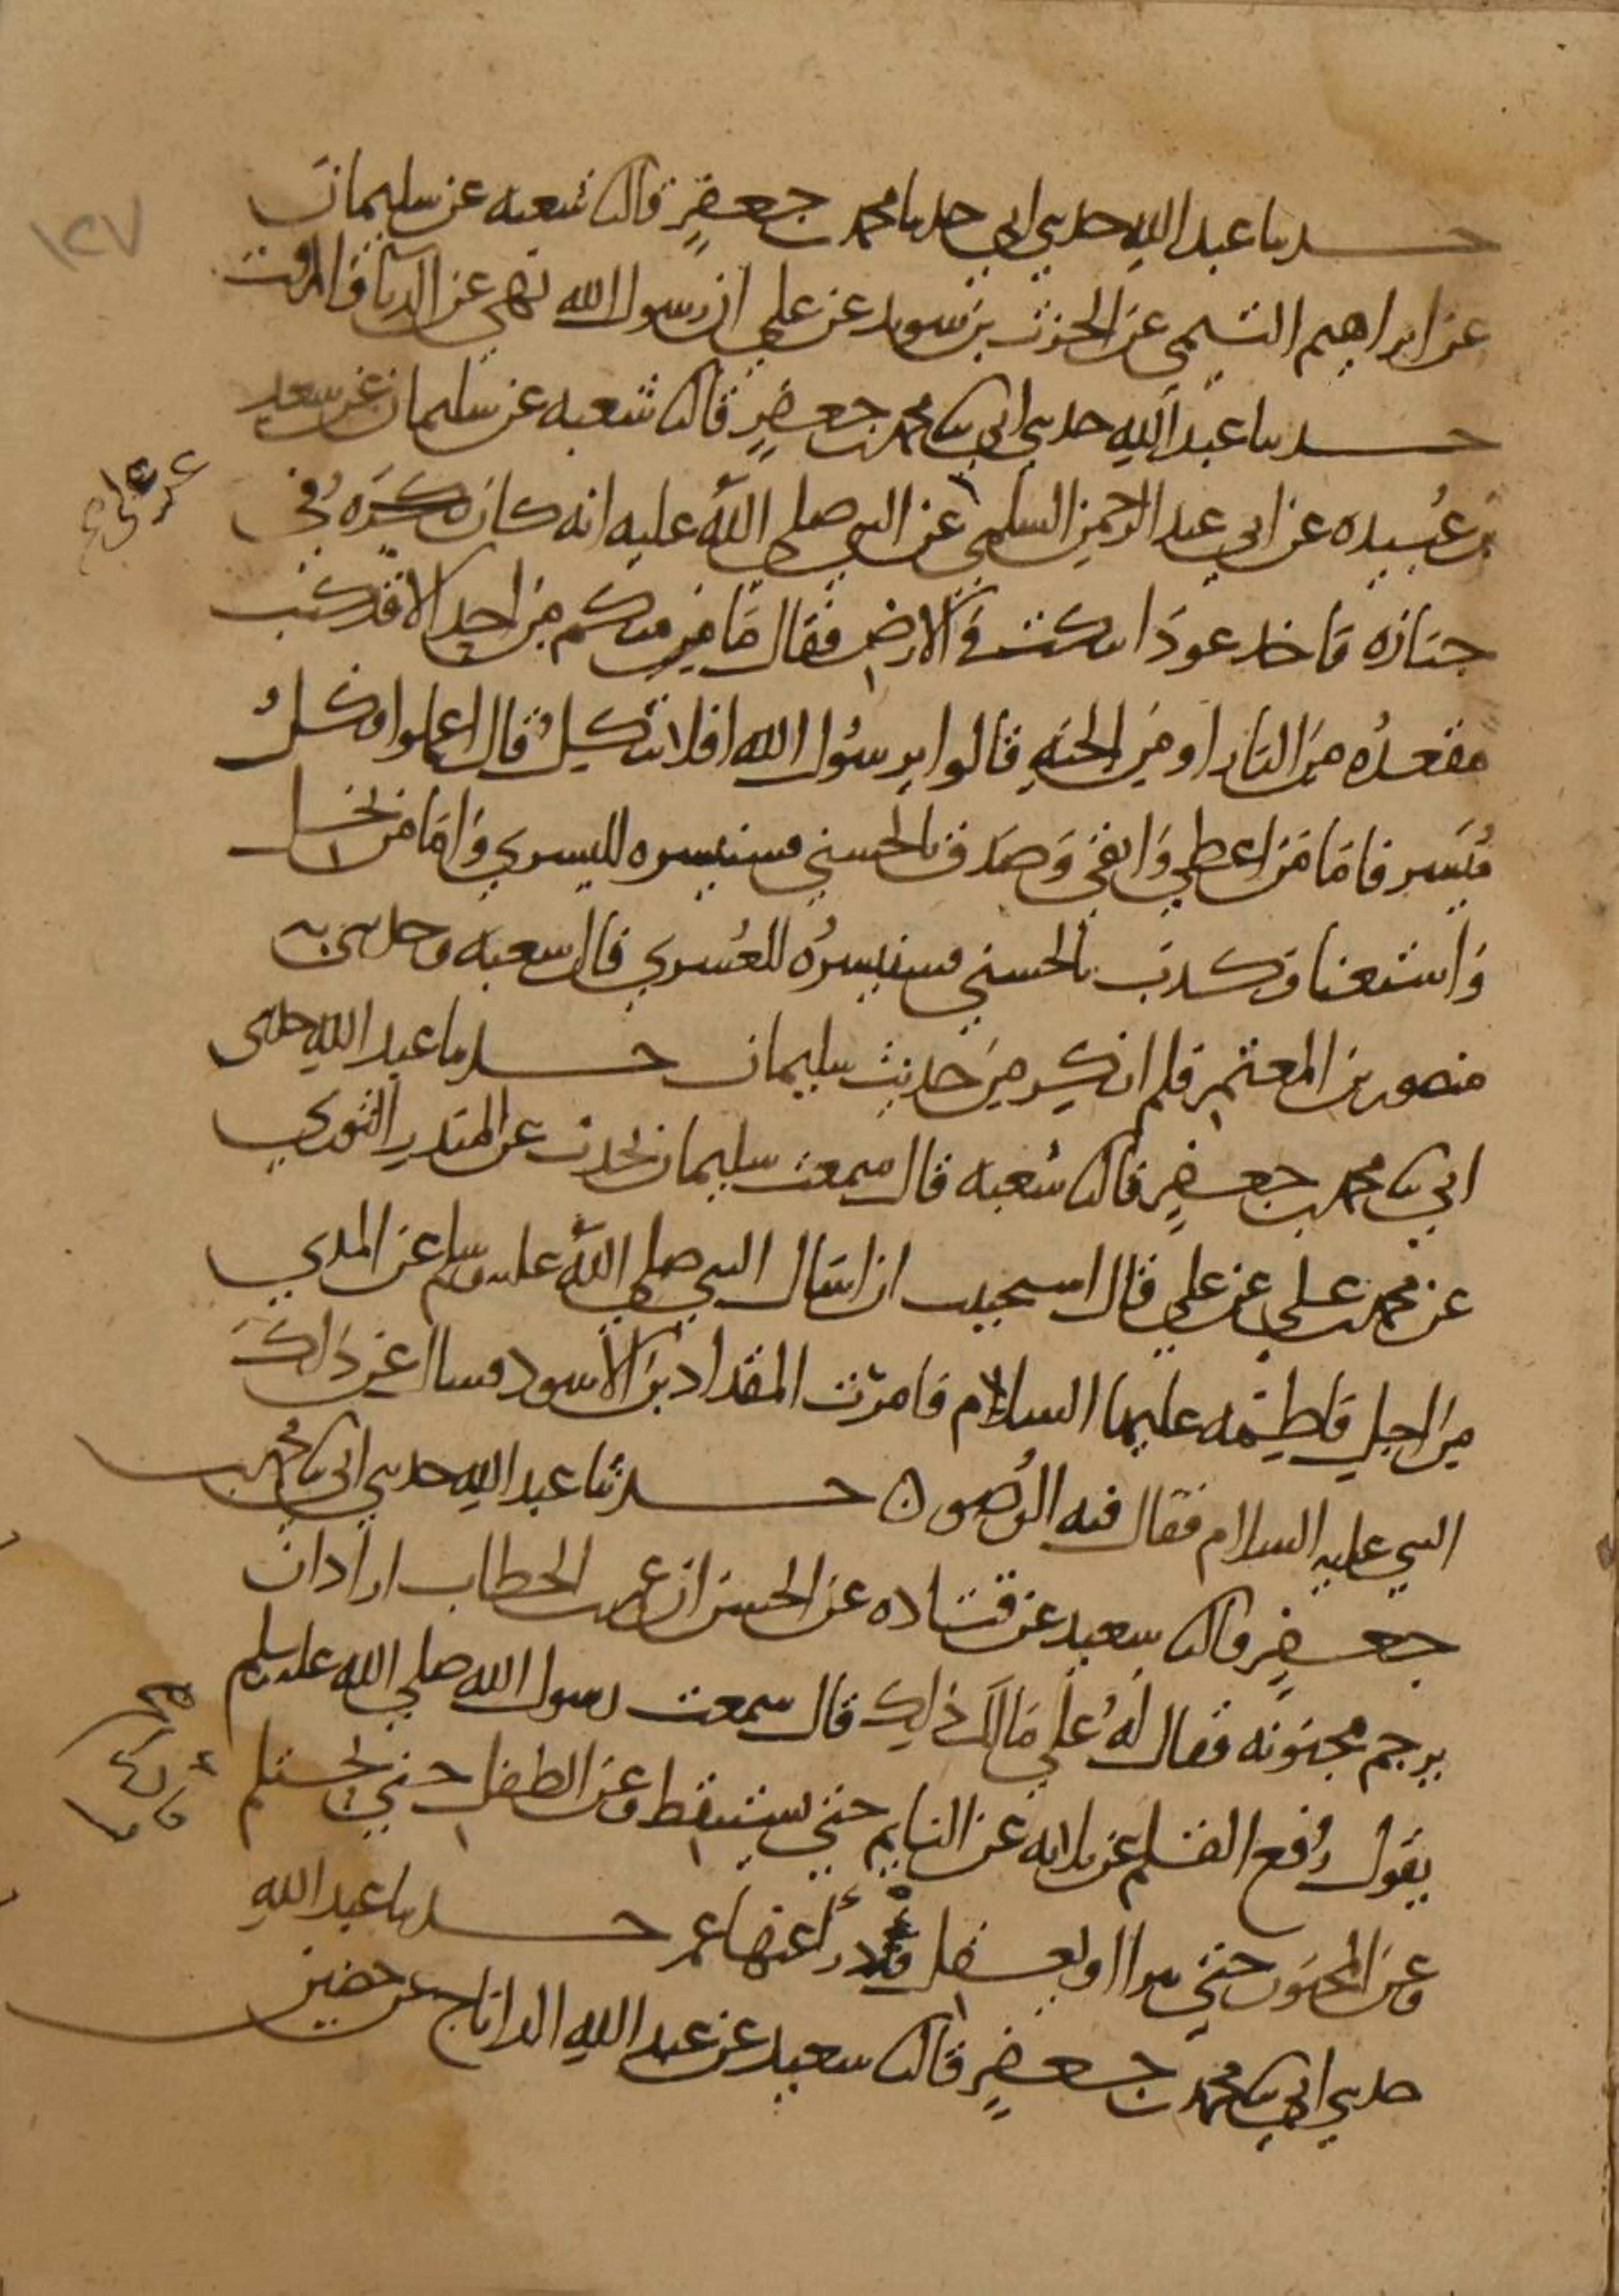 حدثنا عبد الله حدثني ابي حدثنا محمد بن جعفر قال ثنا شعبه عن سليمان
عن ابراهيم التيمي عن الحرث بن سويد عن علي ان رسول الله نهى عن الدباء والمزفت
حدثنا عبد الله حدثني ابي ثنا محمد بن جعفر قال ثنا شعبه عن سليمان عن سعد
بن عبيده عن ابي عبد الرحمن السلمي عن النبي صلى الله عليه انه كان في
عن علي
جنازه فاخذ عودا ينكت في الارض فقال ما منكم من احد الا قد كتب
مقعده من النار او من الجنه قالوا يرسول الله افلا نتكل قال اعملوا فكل
ميسر فاما من اعطي واتقى وصدق بالحسني فسنيسره لليسري واما من بخل
واستغنا وكذب بالحسني فسنيسره للعسري قال شعبه وحدثني به
منصور بن المعتمر فلم انكر من حديث سليمان حدثنا عبد الله حدثني
ابي ثنا محمد بن جعفر قال ثنا شعبه قال سمعت سليمان يحدث عن المنذر الثوري
عن محمد بن علي عن علي قال استحييت ان اسال النبي صلي الله عليه وسلم عن المذي
من اجل فاطمه عليها السلام فامرت المقداد بن الاسود فسال عن ذلك
النبي عليه السلام فقال فيه الوضو حدثنا عبد الله حدثني ابي ثنا محمد بن
جعفر قال ثنا سعيد عن قتاده عن الحسن ان عمر بن الخطاب اراد ان
يرجم مجنونه فقال له علي مالك ذلك قال سمعت رسول الله صلي الله عليه وسلم
يقول رفع القلم عن ثلاثه عن النايم حتي يستيقظ وعن الطفل حتي يحتلم
وعن المجنون حتي يبرا او يعقل فدرأ عنها عمر حدثنا عبد الله
حدثني ابي ثنا محمد بن جعفر قال ثنا سعيد عن عبد الله الداناج عن حضين
١٢٧